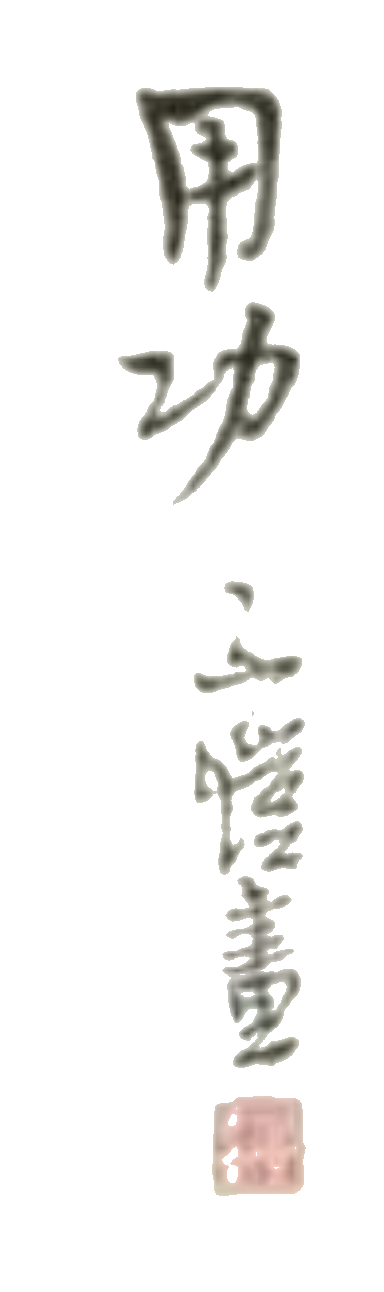 用功
子愷畫